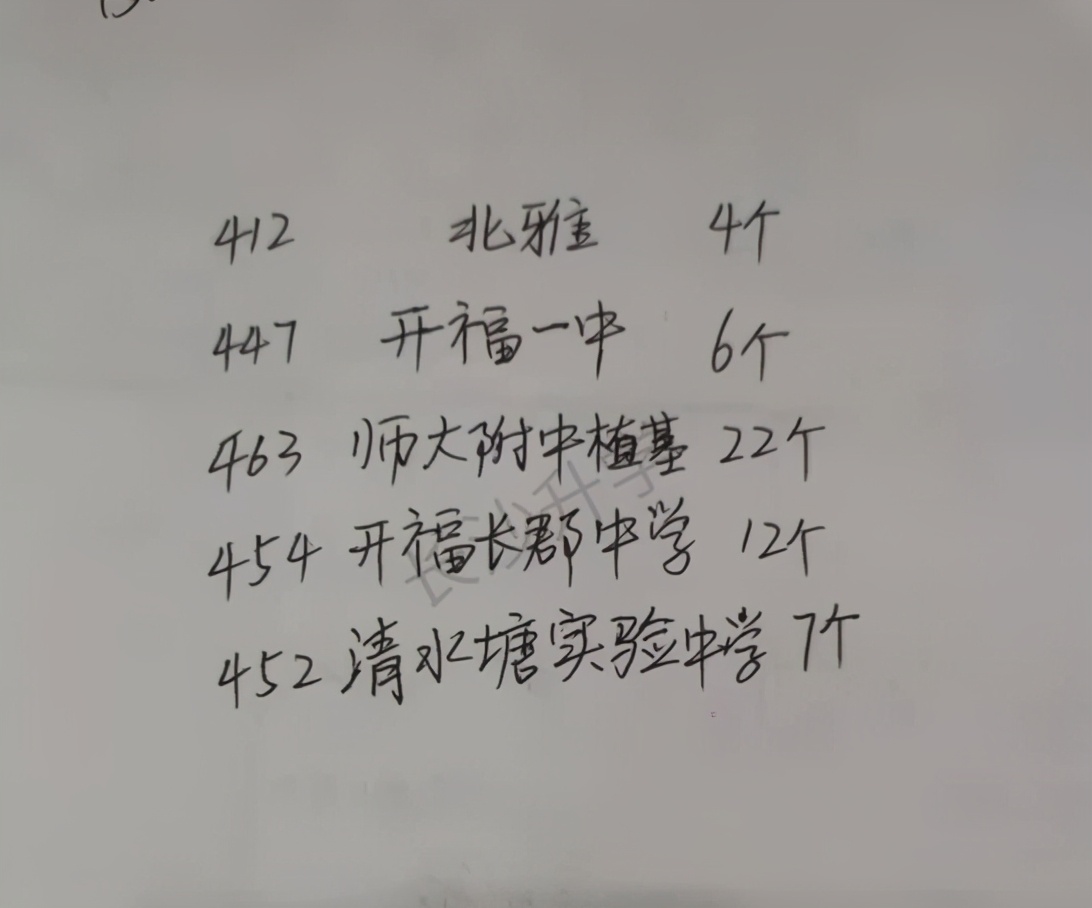 412 北雅 4个
447 开福一中 6个
463 师大附中植基 22个
454 开福长郡中学 12个
452 清水塘实验中学 7个
长沙升学